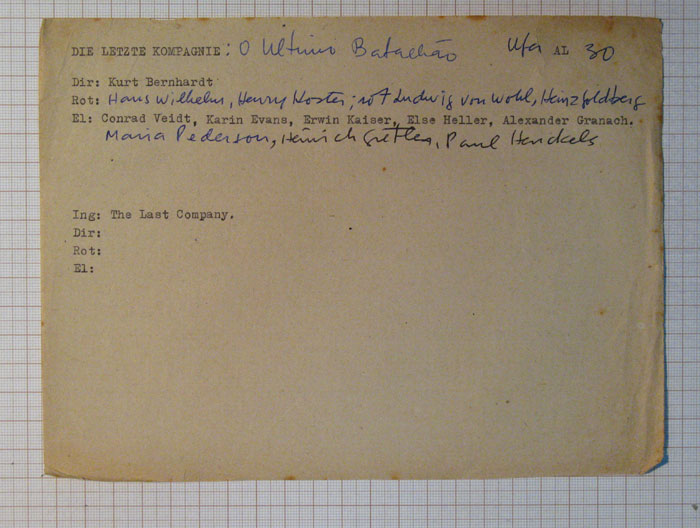 DIE LETZTE KOMPAGNIE: O Ultimo Batalhão Ufa AL 30
Dir: Kurt Bernhardt
Rot: Hans Wilhelm, Henry Koster; rot Ludwig von Wohl, Heinz Goldberg
El: Conrad Veidt, Karin Evans, Erwin Kaiser, Else Heller, Alexander Granach.
Maria Pederson, Heinrich Gretler, Paul Henckels
Ing: The Last Company.
Dir:
Rot:
El: